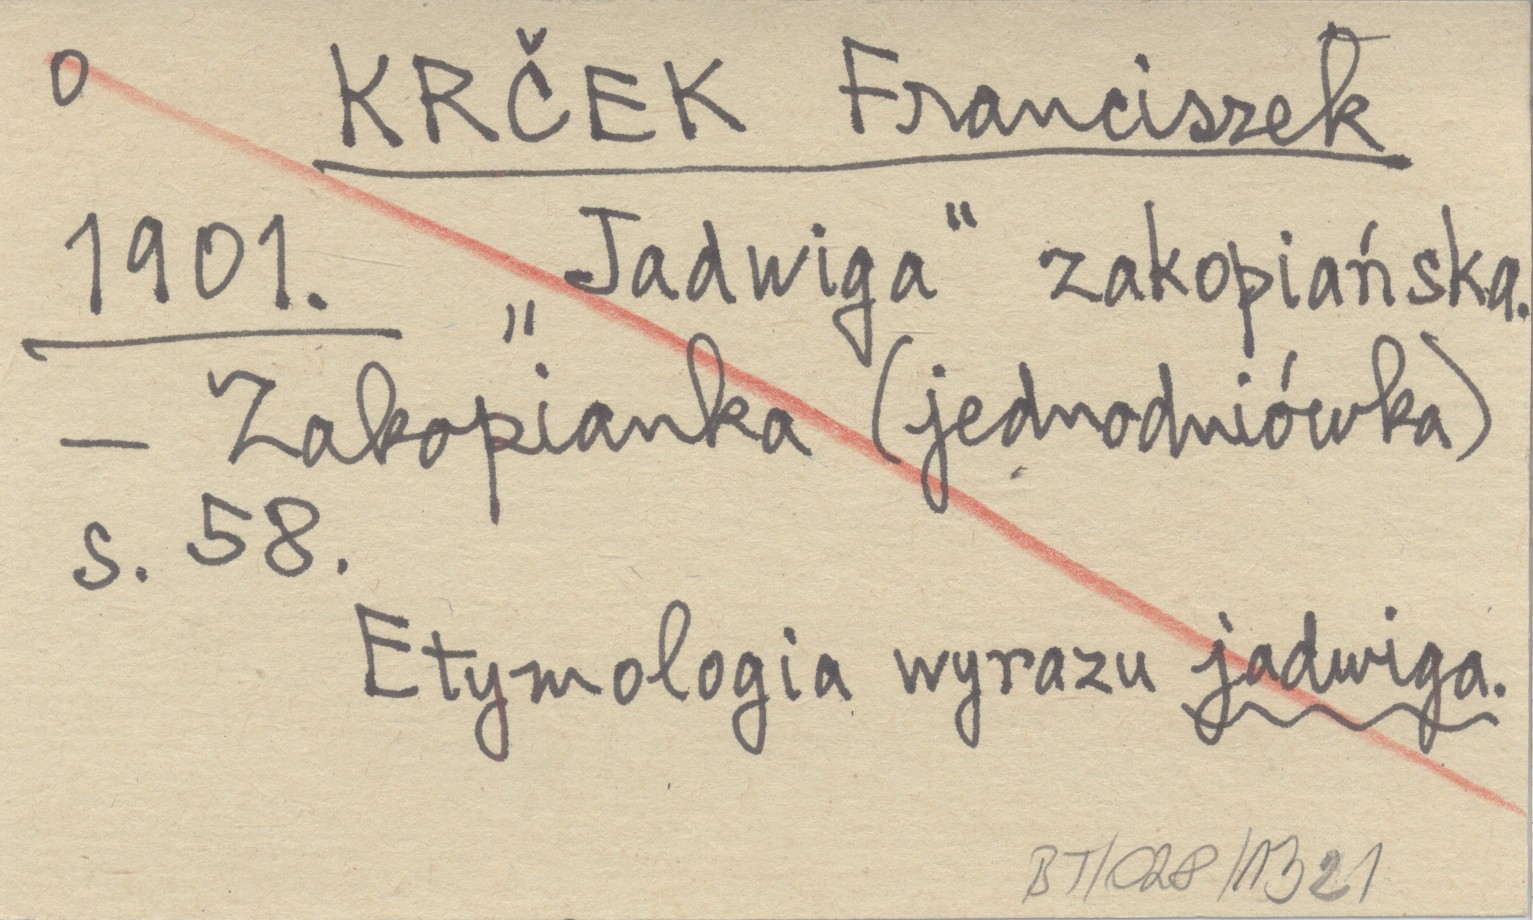 o KRČEK Franciszek
1901. „Jadwiga" zakopiańska.
— Zakopianka (jednodniówka)
s. 58.
Etymologia wyrazu jadwiga.
BT/028/1321